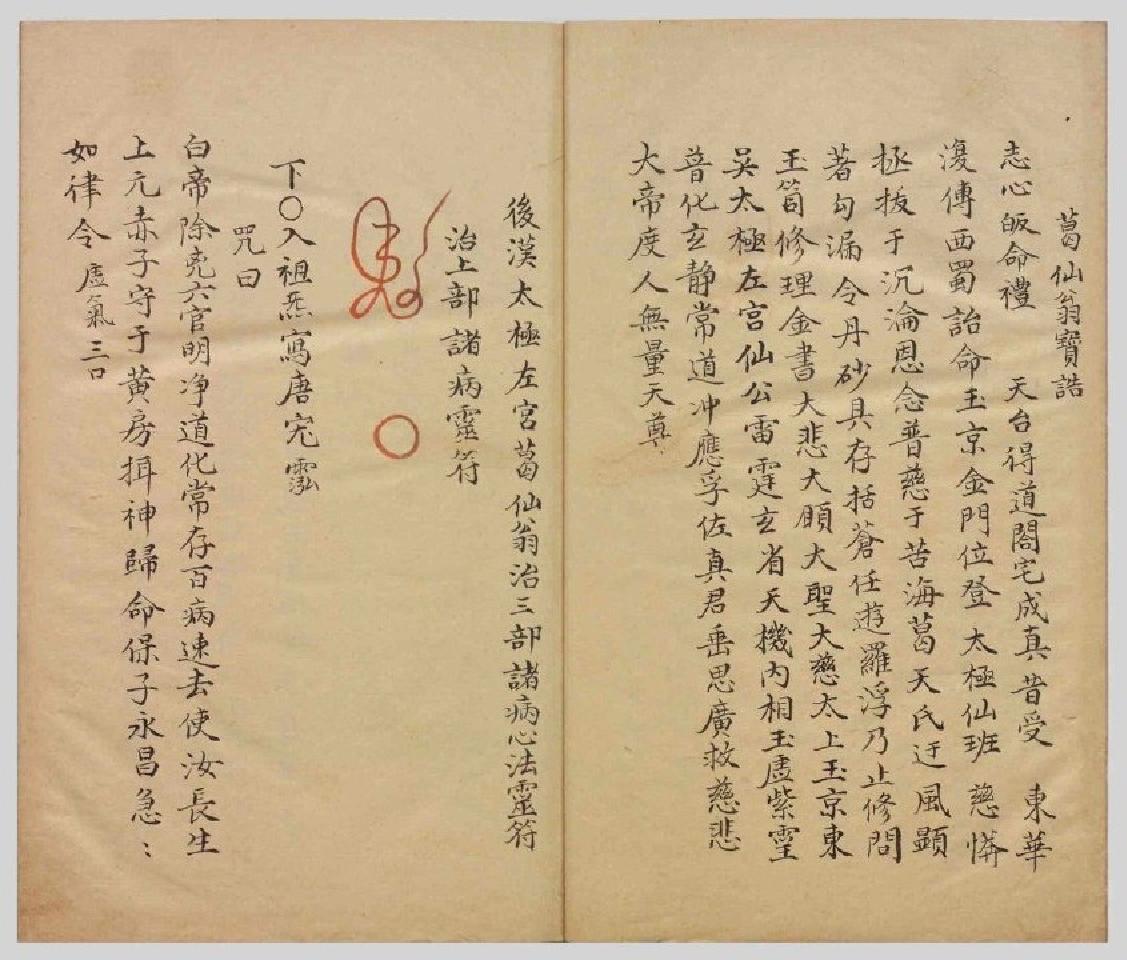 葛仙翁寶誥
志心皈命禮 天台得道閤宅成真昔受 東華
復傳西蜀詔命玉京金門位登 太極仙班 慈憐
拯拔于沉淪恩念普慈于苦海葛天氏迂風顯
著勾漏令丹砂具存括蒼任遊羅浮乃止修問
玉笥修理金書大悲大願大聖大慈太上玉京東
吳太極左宮仙公雷霆玄省天機內相玉虛紫靈
普化玄靜常道冲應孚佐真君垂思廣救慈悲
大帝度人無量天尊
後漢太極左宮葛仙翁治三部諸病心法靈符
治上部諸病靈符
下〇入祖炁寫唐宄
咒曰
白帝除尭六官明净道化常存百病速去使汝長生
上元赤子守于黄房揖神歸命保子永昌急〻
如律令 虛氣三口